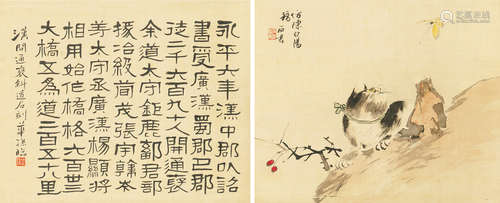 永平六年漢中郡以詔
書受廣漢蜀郡巴郡
徒二千六百九十人開通褒
余道太守鉅鹿鄐君部
掾治級荀茂張宇韓岑
等太守丞廣漢楊顯將
相用始作橋格六百卅三
大橋五為道二百五六里
漢開通褒斜道石刻 華孫臨
陳白陽